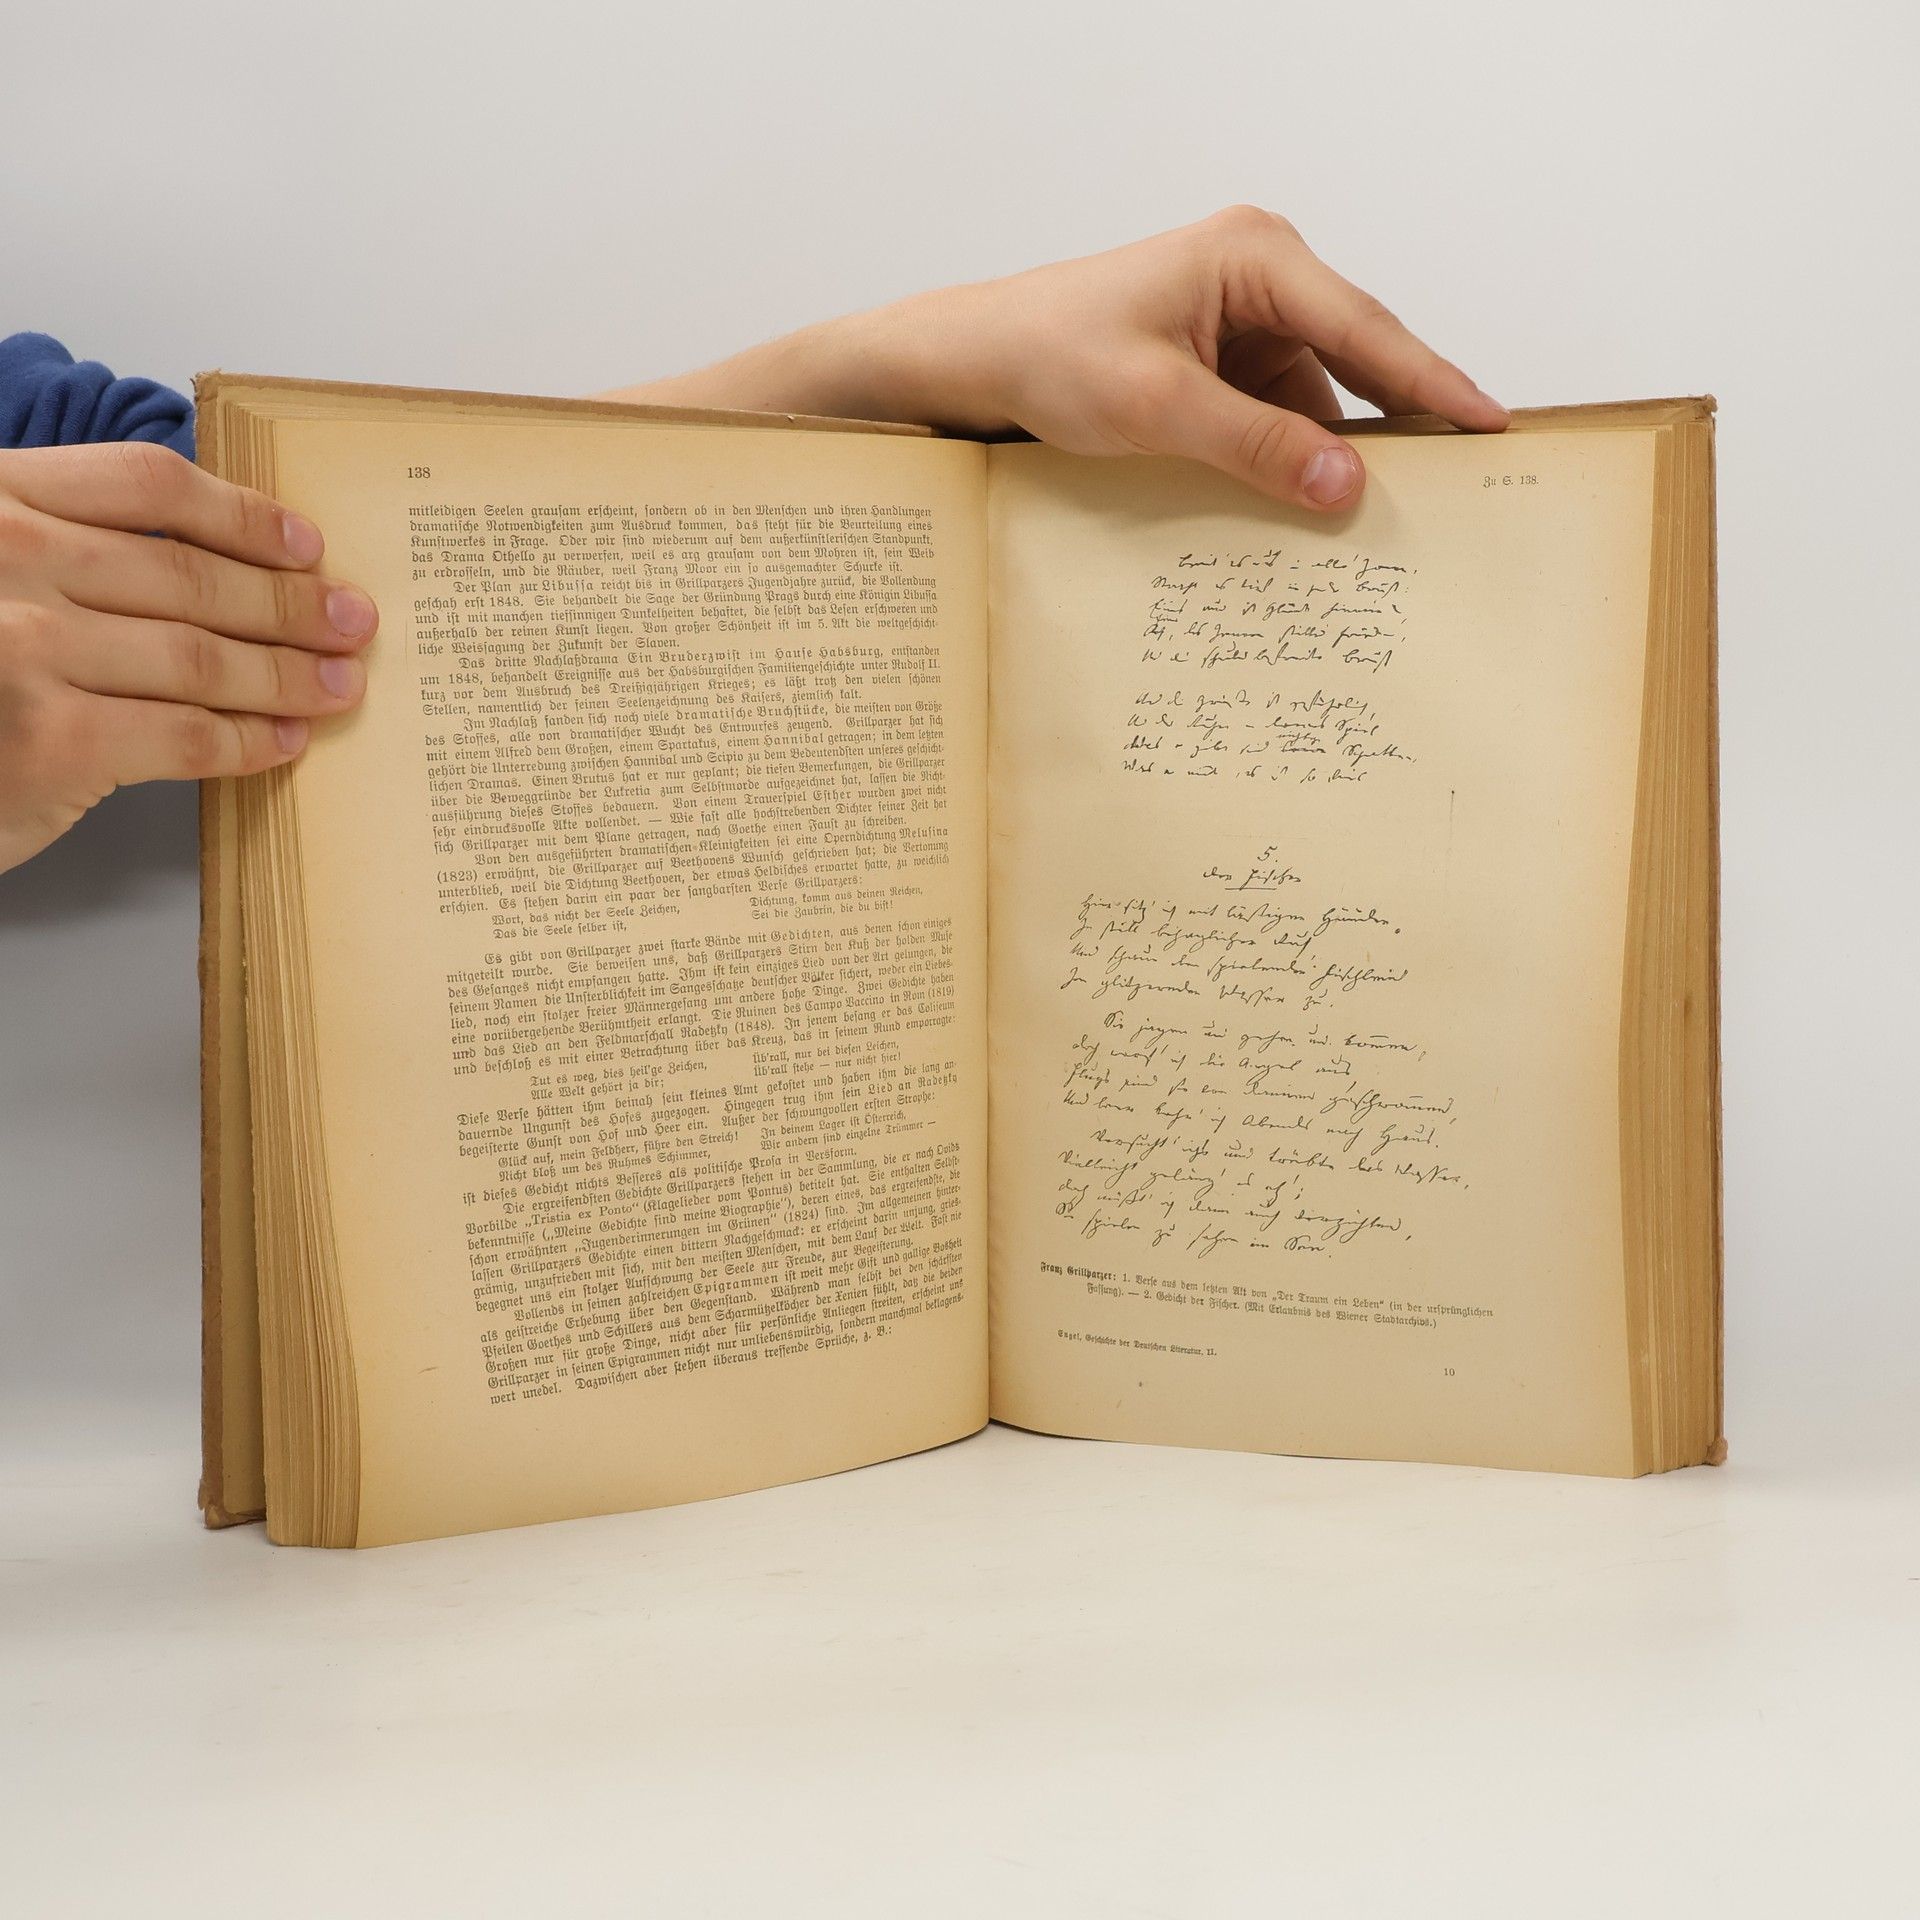 138
mitleidigen Seelen grausam erscheint, sondern ob in den Menschen und ihren Handlungen
dramatische Notwendigkeiten zum Ausdruck kommen, das steht für die Beurteilung eines
Kunstwerkes in Frage. Oder wir sind wiederum auf dem außerkünstlerischen Standpunkt,
das Drama Othello zu verwerfen, weil es arg grausam von dem Mohren ist, sein Weib
zu erdrosseln, und die Räuber, weil Franz Moor ein so ausgemachter Schurke ist.
Der Plan zur Libussa reicht bis in Grillparzers Jugendjahre zurück, die Vollendung
geschah erst 1848. Sie behandelt die Sage der Gründung Prags durch eine Königin Libussa
und ist mit manchen tiefsinnigen Dunkelheiten behaftet, die selbst das Lesen erschweren und
außerhalb der reinen Kunst liegen. Von großer Schönheit ist im 5. Akt die weltgeschicht-
liche Weissagung der Zukunft der Slaven.
Das dritte Nachlaßdrama Ein Bruderzwist im Hause Habsburg, entstanden
um 1848, behandelt Ereignisse aus der Habsburgischen Familiengeschichte unter Rudolf II.
kurz vor dem Ausbruch des Dreißigjährigen Krieges; es läßt trotz den vielen schönen
Stellen, namentlich der feinen Seelenzeichnung des Kaisers, ziemlich kalt.
Im Nachlaß fanden sich noch viele dramatische Bruchstücke, die meisten von Größe
des Stoffes, alle von dramatischer Wucht des Entwurfes zeugend. Grillparzer hat sich
mit einem Alfred dem Großen, einem Spartakus, einem Hannibal getragen; in dem letzten
gehört die Unterredung zwischen Hannibal und Scipio zu dem Bedeutendsten unseres geschicht-
lichen Dramas. Einen Brutus hat er nur geplant; die tiefen Bemerkungen, die Grillparzer
über die Beweggründe der Lukretia zum Selbstmorde aufgezeichnet hat, lassen die Nicht-
ausführung dieses Stoffes bedauern. Von einem Trauerspiel Esther wurden zwei nicht
sehr eindrucksvolle Akte vollendet. — Wie fast alle hochstrebenden Dichter seiner Zeit hat
sich Grillparzer mit dem Plane getragen, nach Goethe einen Faust zu schreiben.
Von den ausgeführten dramatischen Kleinigkeiten sei eine Operndichtung Melusina
(1823) erwähnt, die Grillparzer auf Beethovens Wunsch geschrieben hat; die Vertonung
unterblieb, weil die Dichtung Beethoven, der etwas Heldisches erwartet hatte, zu weichlich
erschien. Es stehen darin ein paar der sangbarsten Verse Grillparzers:
Wort, das nicht der Seele Zeichen,
Das die Seele selber ist,
Dichtung, komm aus deinen Reichen,
Sei die Zaubrin, die du bist!
Es gibt von Grillparzer zwei starke Bände mit Gedichten, aus denen schon einiges
mitgeteilt wurde. Sie beweisen uns, daß Grillparzers Stirn den Kuß der holden Muse
des Gesanges nicht empfangen hatte. Ihm ist kein einziges Lied von der Art gelungen, die
seinem Namen die Unsterblichkeit im Sangesschatze deutscher Völker sichert, weder ein Liebes-
lied, noch ein stolzer freier Männergesang um andere hohe Dinge. Zwei Gedichte haben
eine vorübergehende Berühmtheit erlangt. Die Ruinen des Campo Vaccino in Rom (1819)
und das Lied an den Feldmarschall Radetzky (1848). In jenem besang er das Coliseum
und beschloß es mit einer Betrachtung über das Kreuz, das in seinem Rund emporragte:
Tut es weg, dies heil'ge Zeichen,
Alle Welt gehört ja dir;
Üb'rall, nur bei diesen Leichen,
Üb'rall stehe — nur nicht hier!
Diese Verse hätten ihm beinah sein kleines Amt gekostet und haben ihm die lang an-
dauernde Ungunst des Hofes zugezogen. Hingegen trug ihm sein Lied an Radetzky
begeisterte Gunst von Hof und Heer ein. Außer der schwungvollen ersten Strophe:
Glück auf, mein Feldherr, führe den Streich!
Nicht bloß um des Ruhmes Schimmer,
In deinem Lager ist Österreich,
Wir andern sind einzelne Trümmer —
ist dieses Gedicht nichts Besseres als politische Prosa in Versform.
Die ergreifendsten Gedichte Grillparzers stehen in der Sammlung, die er nach Ovids
Vorbilde „Tristia ex Ponto“ (Klagelieder vom Pontus) betitelt hat. Sie enthalten Selbst-
bekenntnisse („Meine Gedichte sind meine Biographie“), deren eines, das ergreifendste, die
schon erwähnten „Jugenderinnerungen im Grünen“ (1824) sind. Im allgemeinen hinter-
lassen Grillparzers Gedichte einen bittern Nachgeschmack: er erscheint darin unjung, gries-
grämig, unzufrieden mit sich, mit den meisten Menschen, mit dem Lauf der Welt. Fast nie
begegnet uns ein stolzer Aufschwung der Seele zur Freude, zur Begeisterung.
Vollends in seinen zahlreichen Epigrammen ist weit mehr Gift und gallige Bosheit
als geistreiche Erhebung über den Gegenstand. Während man selbst bei den schärfsten
Pfeilen Goethes und Schillers aus dem Scharmützelköcher der Xenien fühlt, daß die beiden
Großen nur für große Dinge, nicht aber für persönliche Anliegen streiten, erscheint uns
Grillparzer in seinen Epigrammen nicht nur unliebenswürdig, sondern manchmal beklagens-
wert unedel. Dazwischen aber stehen überaus treffende Sprüche, z. B.:
Zu S. 138.
Eines nur ist Glück hienieden,
Eins, des Innern stiller Frieden,
Und die schuldbefreite Brust
Und die Größe ist gefährlich,
Und der Ruhm ein leeres Spiel
Was er gibt sind nichtge Schatten,
Was er nimmt, es ist so viel
5.
Der Fischer
Hier sitz' ich mit lässigen Händen,
In still behaglicher Ruh
Und schaue den spielenden Fischlein
Im glitzernden Wasser zu.
Sie jagen und gehen und kommen,
doch werf' ich die Angel aus
Flugs sind sie von dannen geschwommen,
Und leer kehr' ich Abends nach Haus.
Versucht' ichs und trübte das Wasser,
Vielleicht geläng' es eh';
doch müßt' ich dann auch verzichten,
Sie spielen zu sehen im See.
Franz Grillparzer: 1. Verse aus dem letzten Akt von „Der Traum ein Leben“ (in der ursprünglichen
Fassung). — 2. Gedicht der Fischer. (Mit Erlaubnis des Wiener Stadtarchivs.)
Engel, Geschichte der Deutschen Literatur. II.
10